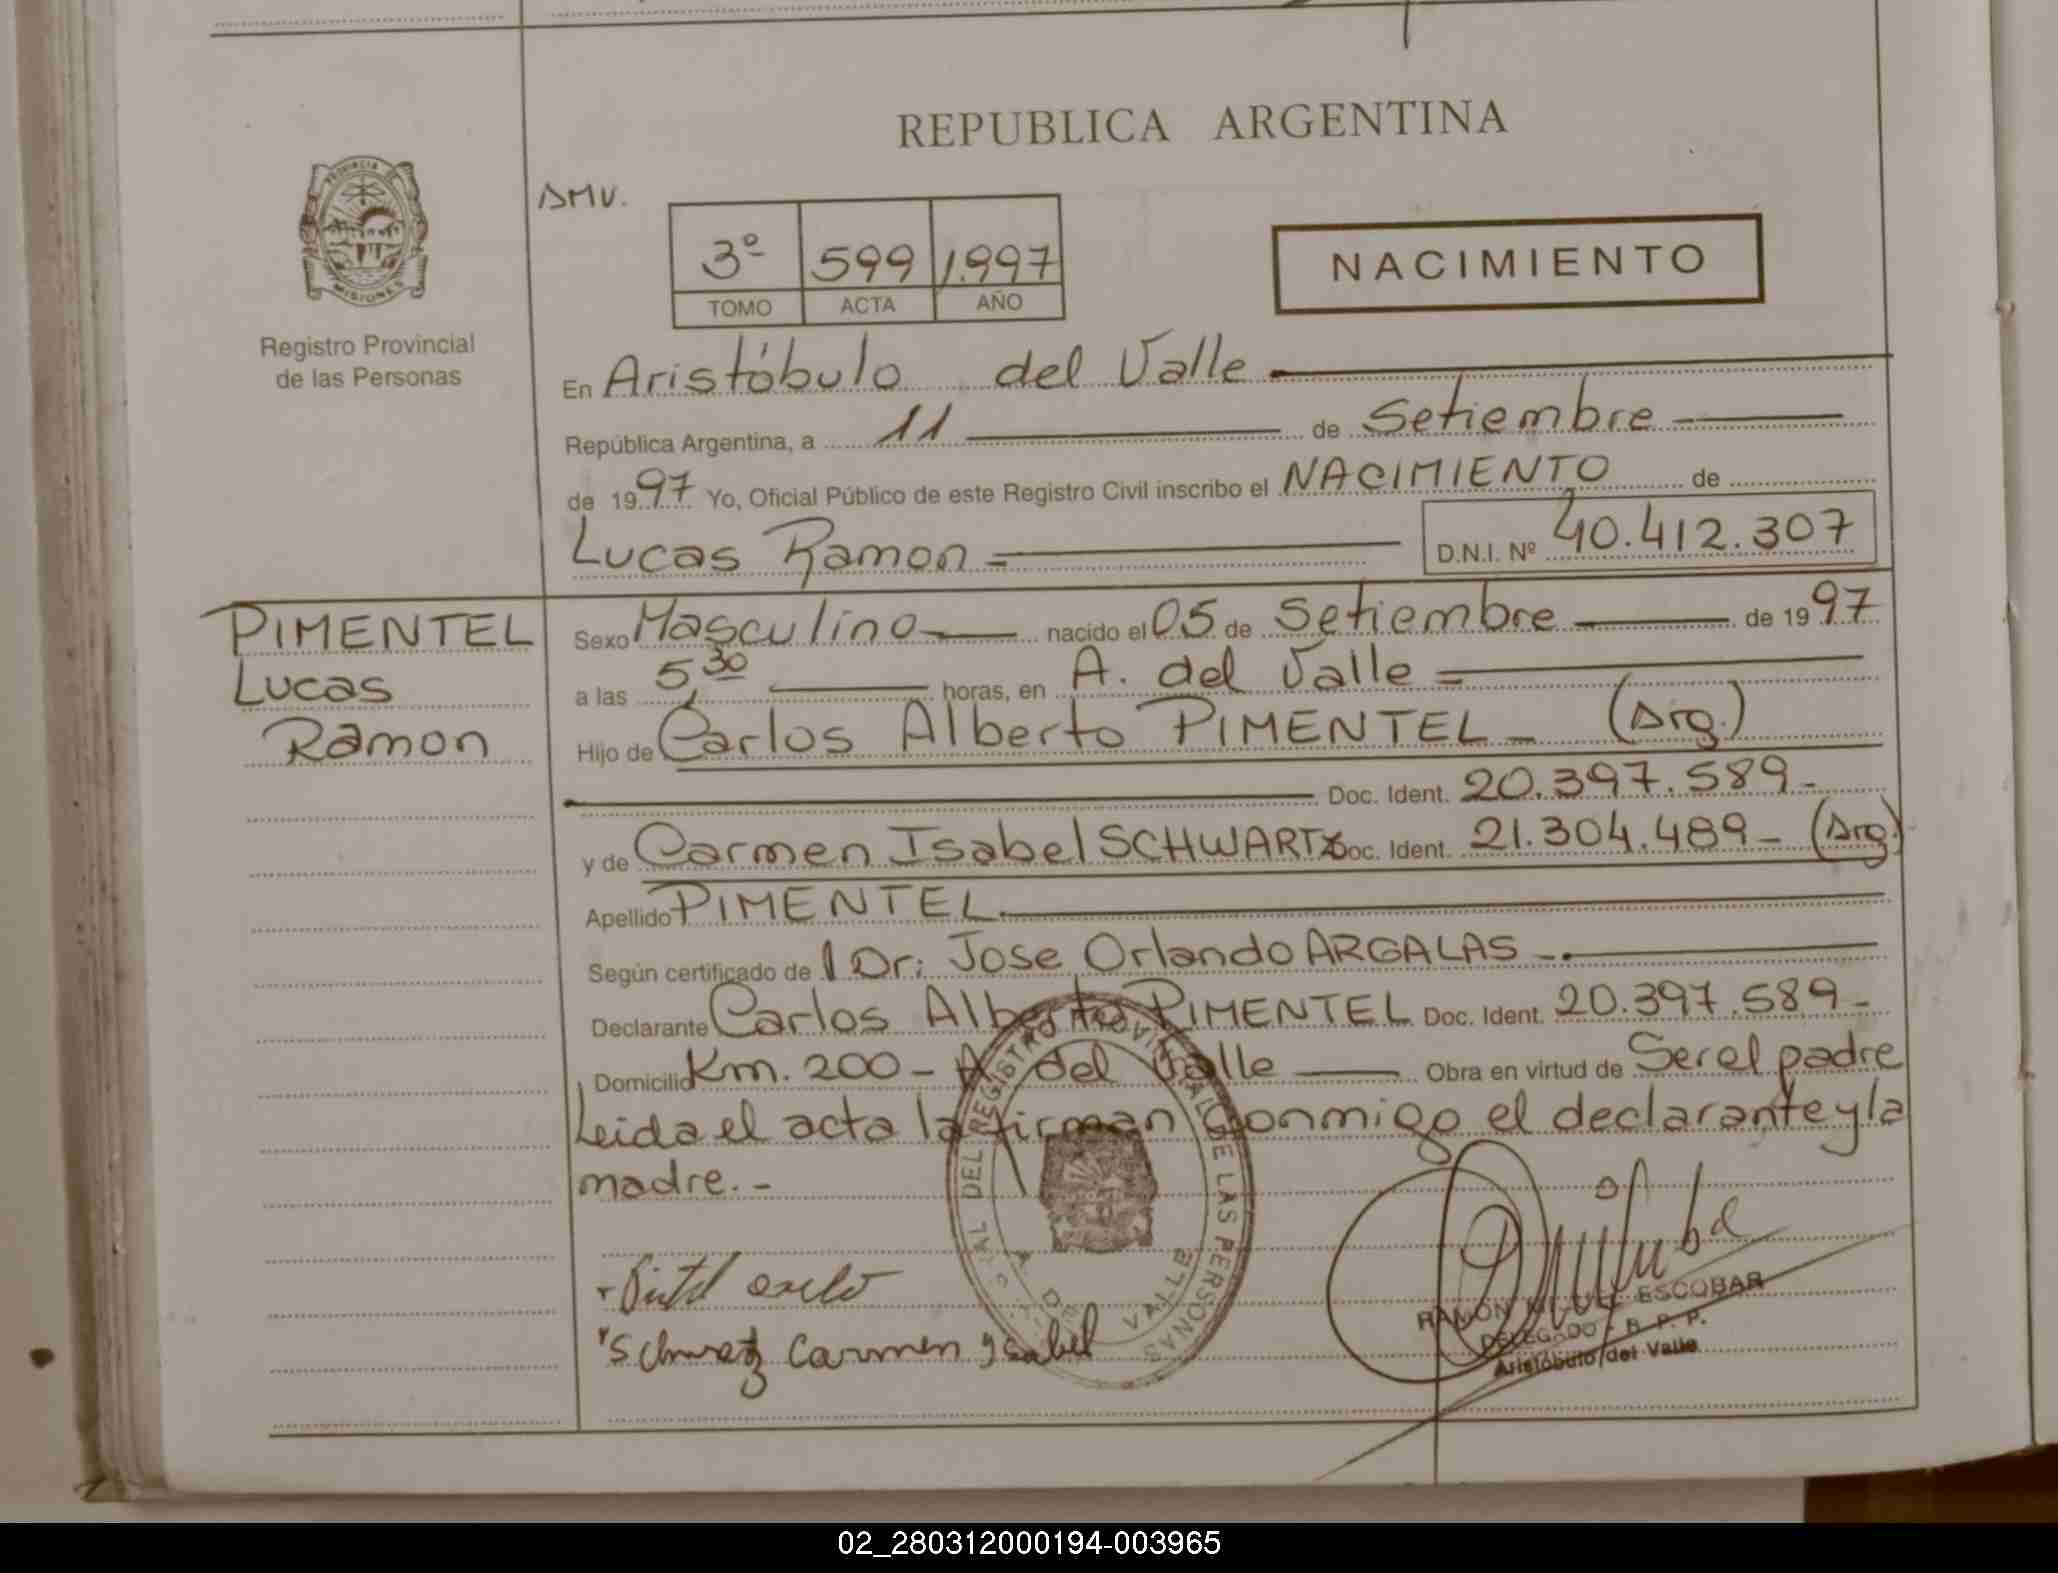 REPUBLICA ARGENTINA
PROVINCIA DE
MISIONES
Registro Provincial
de las Personas
AMV.
3º 599 1.997
TOMO ACTA AÑO
NACIMIENTO
En Aristóbulo del Valle
República Argentina, a 11 de Setiembre
de 1997 Yo, Oficial Público de este Registro Civil inscribo el NACIMIENTO de
Lucas Ramon D.N.I. Nº 40.412.307
PIMENTEL
Lucas
Ramon
Sexo Masculino nacido el 05 de Setiembre de 1997
a las 5,30 horas, en A. del Valle
Hijo de Carlos Alberto PIMENTEL (Arg.)
Doc. Ident. 20.397.589-
y de Carmen Isabel SCHWARTZ Doc. Ident. 21.304.489- (Arg)
Apellido PIMENTEL
Según certificado de l Dr: Jose Orlando ARGALAS
Declarante Carlos Alberto PIMENTEL Doc. Ident. 20.397.589-
Domicilio Km. 200 - A del Valle Obra en virtud de Ser el padre
Leida el acta la firman conmigo el declarante y la
madre.-
DEL REGISTRO PROVINCIAL DE LAS PERSONAS
A. DEL VALLE
Carmen Ysabel
RAMON MIGUEL ESCOBAR
DELEGADO R. P. P.
Aristóbulo del Valle
02_280312000194-003965